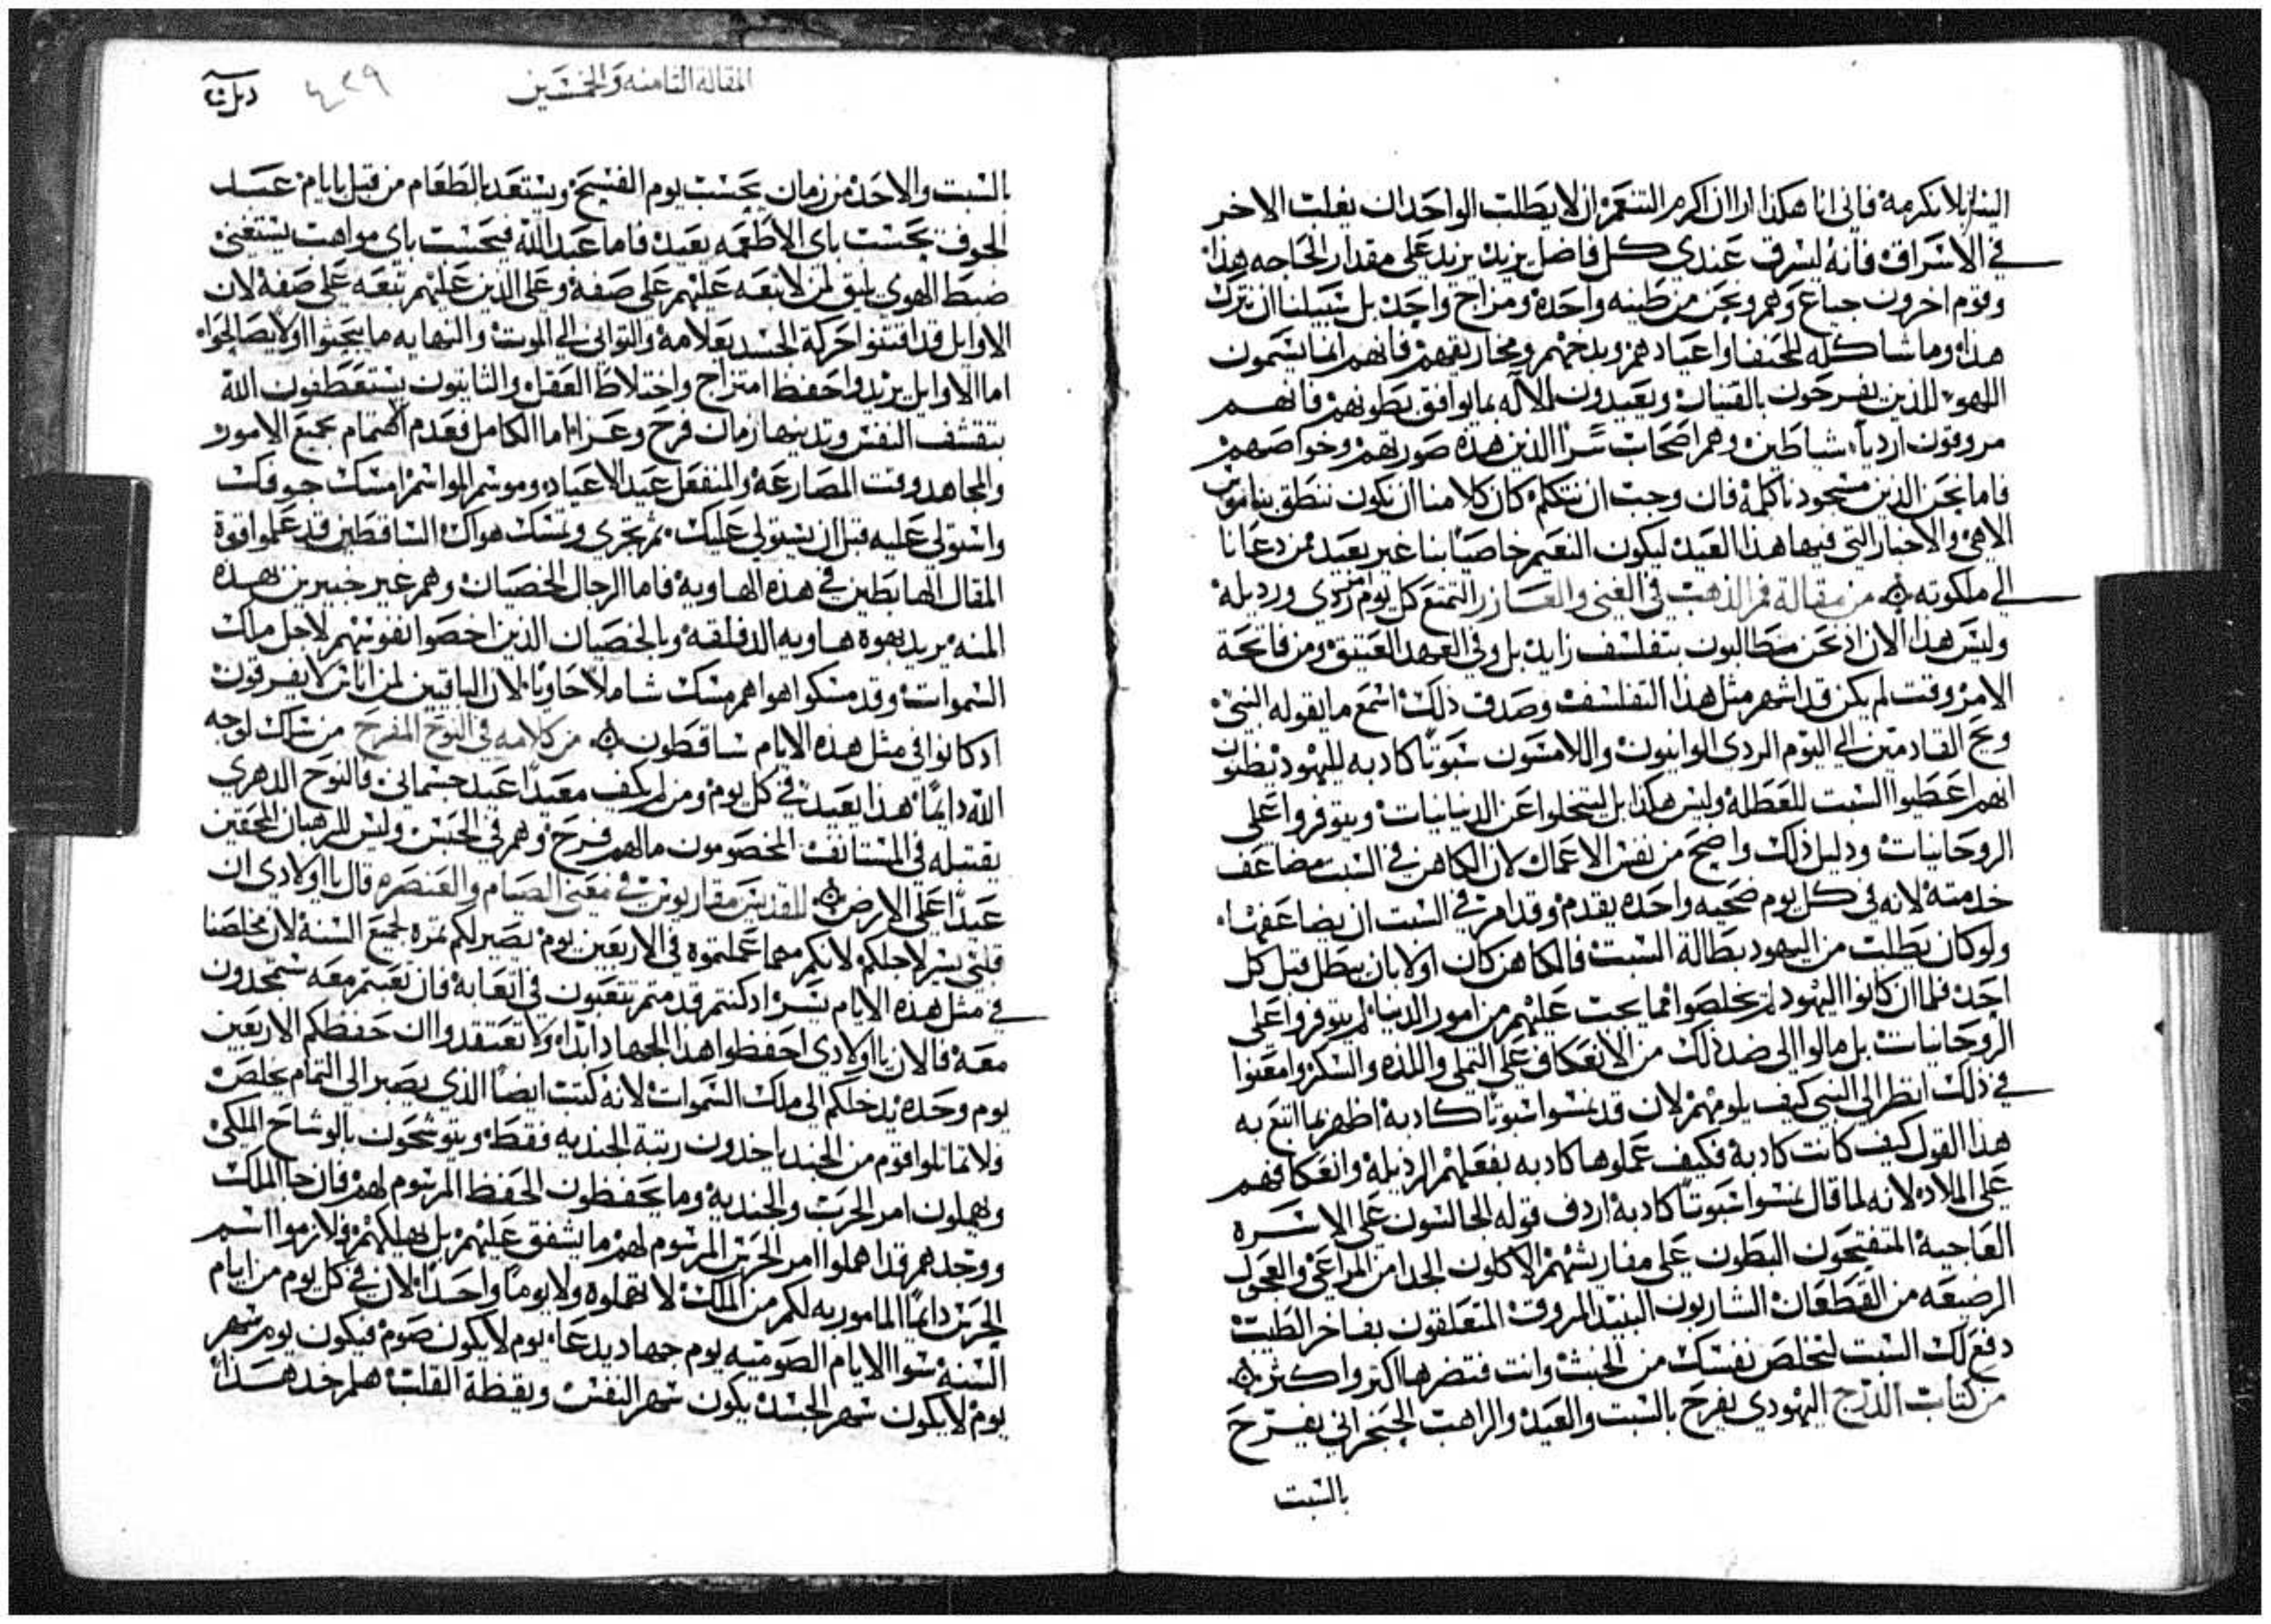 البنا بلا نكرمه فاني انا هكذا ارا ان اكرم التنعم ان لا يطلب الواحد ان يغلب الاخر
في الاسراف فانه ليسرف عندي كل فاضل يزيد يزيد على مقدار الحاجه هذا
وقوم اخرون جياع وهم ونحن من طينه واحده ومزاج واحد بل سبيلنا ان نترك
هذا وما شاكله للحنفا واعيادهم وبدخهم ومخاريقهم فانهم انما يسمون
اللهو للذين يفرحون بالقتار ويعيدون للاله بما يوافق بطونهم فانهم
مروقون اردياء شياطين وهم اصحاب شرا الذين هذه صورتهم وخواصهم
فاما نحن الذين مسجود نا كلمة فان وجب ان نتكلم كان كلامنا ان نكون ننطق بناموس
الاهي والاخبار التي فيها هذا العيد ليكون النعيم خاصيا بنا غير بعيد من دعانا
الي ملكوته من مقالة فم الذهب في الغني والعازر التمتع كل يوم امر ردي ورديله
وليس هذا الان اد نحن مطالبون بتفلسف زايد بل وفي العهد العتيق ومن فاتحة
الامر وقت لم يكن قد اشهر مثل هذا التفلسف وصدق ذلك اسمع ما يقوله النبي
ويح القادمين الي اليوم الردي الوانيون واللامسون سبوتا كادبه لليهود يظنون
انهم اعطيوا السبت للعطله وليس هكذا بل ليتخلوا عن الدنيانيات ويتوفروا على
الروحانيات ودليل ذلك واضح من نفس الاعمال لان الكاهن في السبت مضاعف
خدمته لانه في كل يوم ضحيه واحده يقدم وقد امر في السبت ان يضاعفها
ولو كان يطلب من اليهود بطالة السبت فالكاهن كان اولا بان يبطل قبل كل
احد فلما ان كانوا اليهود لم يخلصوا مما يحب عليهم من امور الدنيا لم يتوفروا على
الروحانيات بل مالوا الى ضد ذلك من الانعكاف على التملي واللذه والسكر وامعنوا
في ذلك انظر الى النبي كيف يلومهم لان قد نسوا سبوتا كادبة اظهر بما اتبع به
هذا القول كيف كانت كادبة فكيف عملوها كادبه بفعلهم الرذيلة وانعكافهم
على الملاد لانه لما قال نسوا سبوتا كادبة اردف قوله الجالسون على الاسره
العاجية المتفتحون البطون على مفارشهم الاكلون الجدا من المراعي والعجول
الرضيعه من القطعان الشاربون النبيد المروق المتعلقون بفاخر الطيب
دفع لك السبت لتخلص نفسك من الخبث وانت فتضرها اكثر واكثر
من كتاب الدرج اليهودي يفرح بالسبت والعيد والراهب الحنجراني يفرح
بالسبت
المقالة الثامنه والخمسين
٤٢٩
بالسبت والاحد من زمان يحسب يوم الفسيح ويستعد بالطعام من قبل بايام عبد
الجوف يحسب باي الاطعمه يعيد فاما عبد الله فيحسب باي مواهب يستغني
ضبط الهوي يليق لمن لا تبعه عليهم على صفة وعلى الدين عليهم تبعه على صفة لان
الاوايل قد اقتنوا حركة الجسد بعلامة والتواني الي الموت والنهايه ما يبحثوا ولا يصالحوا
اما الاوايل يريدوا حفظ امتزاج واختلاط العقل والثانيون يستعطفون الله
بتقشف النفس وتدينها زمان فرح وعزا اما الكامل فعدم الاهتمام بجميع الامور
والمجاهد وقت المصارعة والمنفعل عيد الاعياد وموسم المواسم امسك جوفك
واستولي عليه قبل ان يستولي عليك ثم تجزي وتمسك هواك الساقطين قد علموا قوة
المقال الهابطين في هذه الهاوية فاما الرجال الخصيان وهم غير خبيرين بهذه
المنه يريد بهوة هاويه الدفلقه وبالخصيان الذين اخصوا نفوسهم لاجل ملك
السموات وقد مسكوا هواهم مسك شاملا حاويا لان الباقيين لمن اناس لا يفرقون
ادكانوا في مثل هذه الايام ساقطون من كلامه في النوح المفرح من سلك لوجه
الله دايما هذا يعيد في كل يوم ومن لم يكف معيدا عيد جسماني فالنوح الدهري
يقتبله في المستانف المخصومون ما لهم فرح وهم في الحبس وليس للرهبان المحقين
عيدا على الارض للقديس مقاريوس في معنى الصيام والعنصره قال يا اولادي ان
قلبي يسر لاجلكم لانكم مهما عملتموه في الاربعين يوم يصير لكم ثمرة لجميع السنة لان مخلصنا
في مثل هذه الايام يسر ادكنتم قدمتم تتعبون في اتعابه فان تعبتم معه ستمجدون
معه فالان يا اولادي احفظوا هذا الجهاد ابدا ولا تعتقدوا ان حفظكم الاربعين
يوم وحده يدخلكم الى ملك السموات لانه كتب ايضا الذي يصبر الي التمام يخلص
ولا تماثلوا قوم من الجند ياخدون رتبة الجنديه فقط ويتوشحون بالوشاح الملكي
ويهملون امر الحرب والجندية وما يحفظون الحفظ المرسوم لهم فان جا الملك
ووجدهم قد اهملوا امر الحرس المرسوم لهم ما يشفق عليهم بل يهلكهم فلازموا اسم
الحرس دايما المامور به لكم من الملك لا تهملوه ولا يوما واحدا لان في كل يوم من ايام
السنة سوا الايام الصوميه يوم جهاد يدعا يوم لا يكون صوم فيكون يوم سهر
يوم لا يكون سهر الجسد يكون سهر النفس ويقظة القلب هلم خد هذا